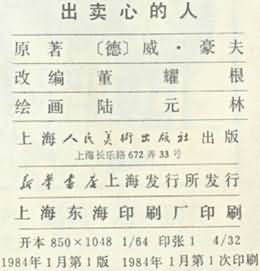 出卖心的人
原著 〔德〕威·豪夫
改编 董耀根
绘画 陆元林
上海人民美术出版社出版
上海长乐路672弄33号
新华书店上海发行所发行
上海东海印刷厂印刷
开本850×1048 1/64 印张1 4/32
1984年1月第1版 1984年1月第1次印刷